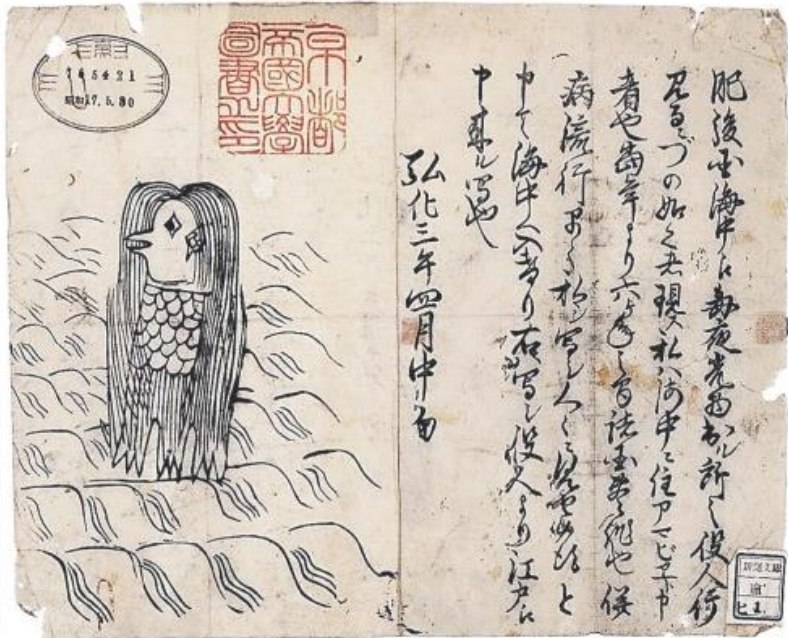 肥後国海中え毎夜光物出ル所之役人行
見るニづの如く者現ス私ハ海中ニ住アマビヱト申
者也當年より六ヶ年之間諸国豊作也併
病流行早々私シ写シ人々ニ見せ候得と
申て海中へ入けり右写シ役人より江戸え
申来ル写也
弘化三年四月中旬
京都
帝國大學
圖書之印
昭和17.5.30
新聞文庫